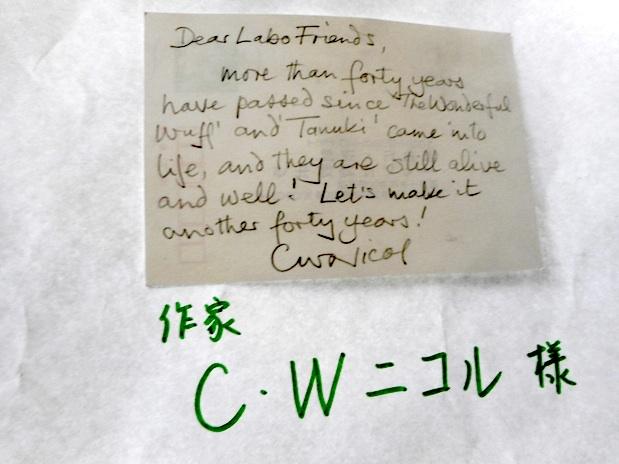 Dear Labo Friends,
more than forty years
have passed since 'The Wonderful
Wuff' and 'Tanuki' came into
life, and they are still alive
and well! Let's make it
another forty years!
CW Nicol
作家
C・W ニコル 様